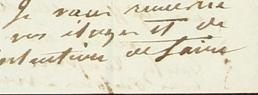 Je vous remercie
vos éloges et de
intention de faire